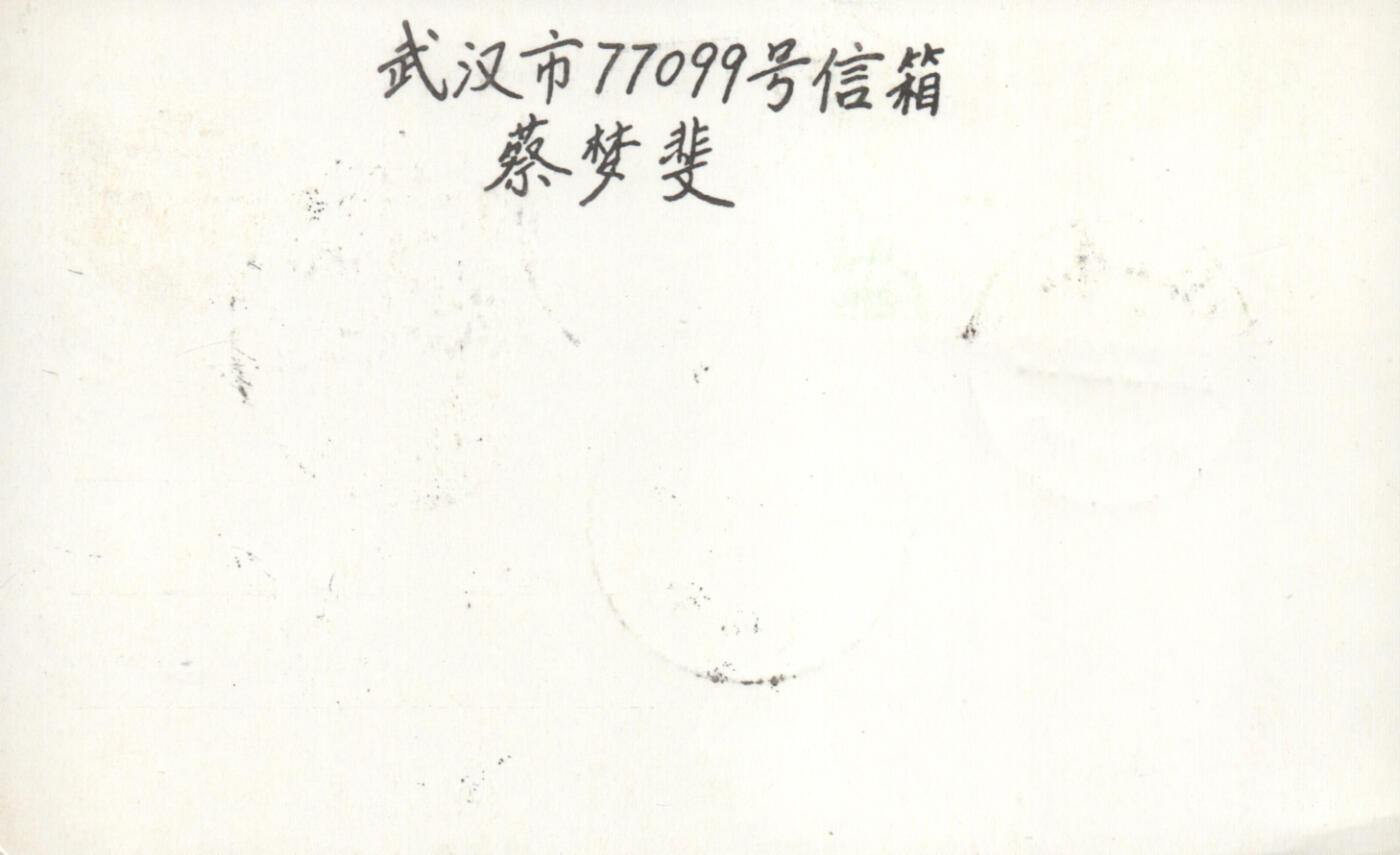 武汉市77099号信箱
蔡梦斐